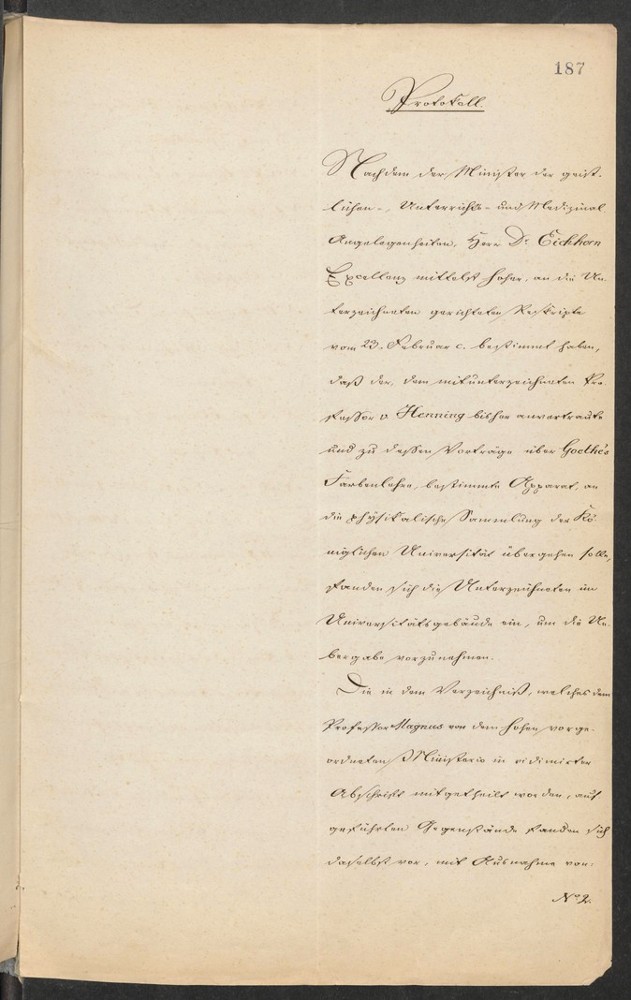 187
Protokoll.
Nachdem der Minister der geist-
lichen-, Unterrichts- und Medizinal
Angelegenheiten, Herr Dr. Eichhorn
Excellenz mittelst hoher, an die Un-
terzeichneten gerichteten Reskripte
vom 23. Februar c. bestimmt haben,
daß der, dem mitunterzeichneten Pro-
fessor v Henning bisher anvertraute
und zu dessen Vorträge über Goethe's
Farbenlehre, bestimmte Apparat, an
die physikalische Sammlung der Kö-
niglichen Universität übergehen solle,
fanden sich die Unterzeichneten im
Universitätsgebäude ein, um die Ue-
bergabe vorzunehmen.
Die in dem Verzeichniß, welches dem
Professor Magnus von dem hohen vorge-
ordneten Ministerio in vidimirter
Abschrift mitgetheilt worden, auf
geführten Gegenstände fanden sich
daselbst vor, mit Ausnahme von:
No 2.